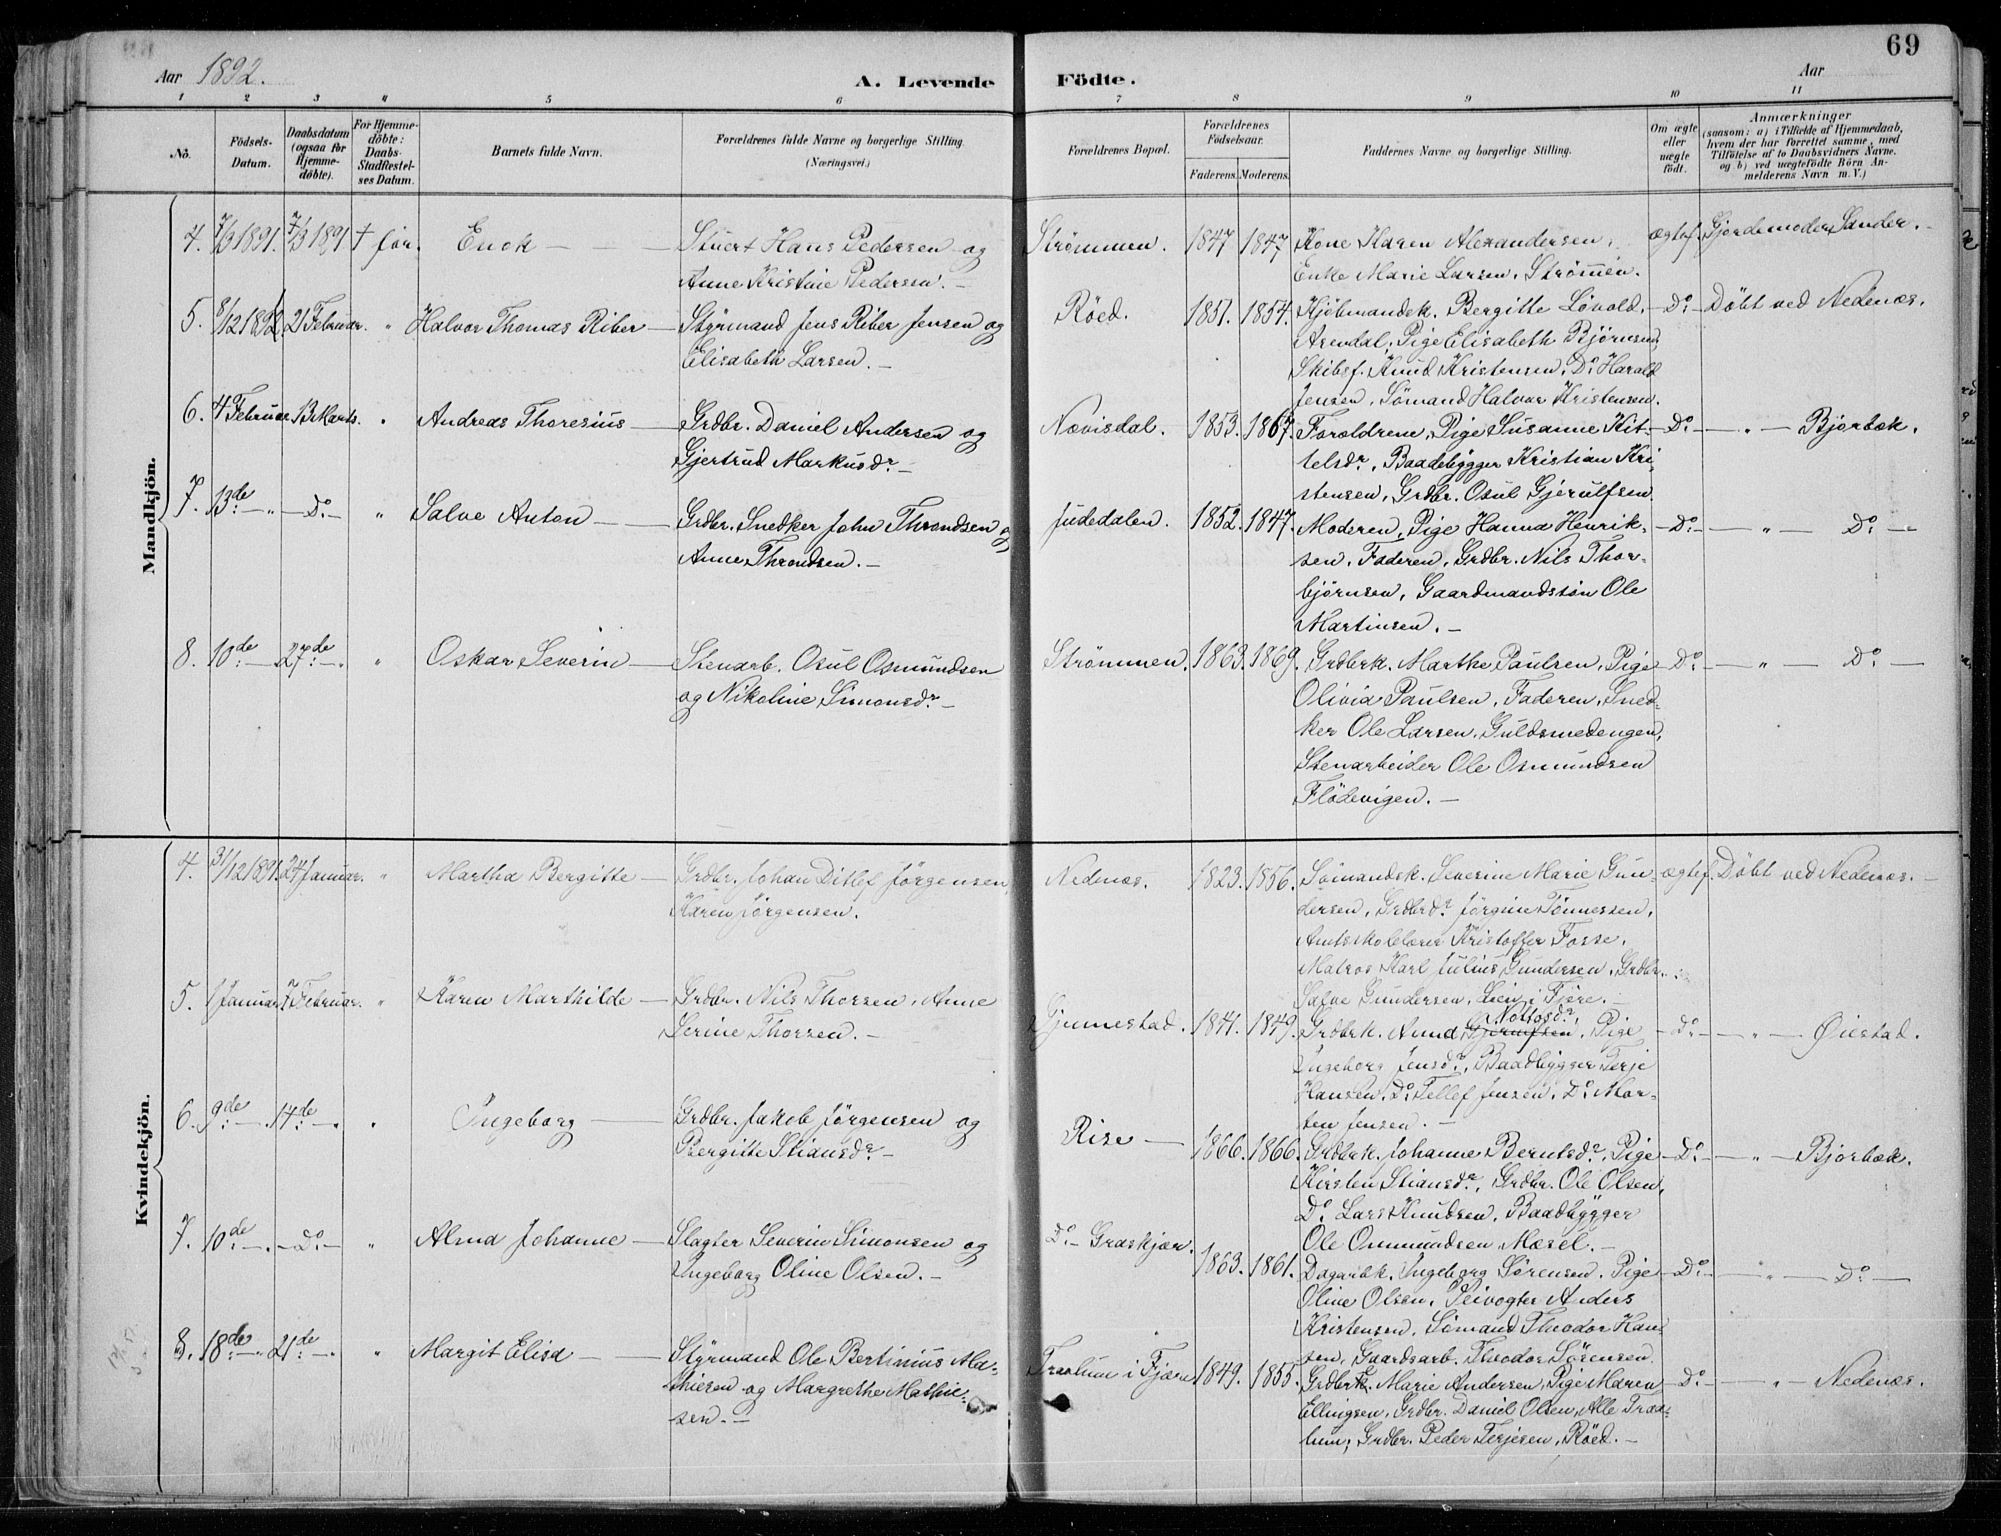 69
Aar 1892.
A. Levende Födte.
Aar
1 2 3 4 5 6 7 8 9 10 11
No.
Födsels-Datum.
Daabsdatum (ogsaa for Hjemmedöbte).
For Hjemmedöbte: Daabs-Stadfestelses Datum.
Barnets fulde Navn.
Forældrenes fulde Navne og borgerlige Stilling. (Næringsvei.)
Forældrenes Bopæl.
Forældrenes Födselsaar.
Faderens. Moderens.
Faddernes Navne og borgerlige Stilling.
Om ægte eller uægte födt.
Anmærkninger
(saasom: a) i Tilfælde af Hjemmedaab, hvem der har forrettet samme, med Tilföielse af to Daabsvidners Navne. og b) ved uægtefödte Börn Anmelderens Navn m. V.)
Mandkjön.
4. 7/3 1891. 7/3 1891 † før. Enok — Stuert Hans Pedersen og
Anne Kristine Pedersen. —
Strømmen. 1847 1847 Kone Karen Alexandersen,
Enke Marie Larsen, Strømmen.
ægtef. Gjordemoder Sander. —
5. 8/12 1892. 21 Februar. " Halvor Thomas Riber — Styrmand Jens Riber Jensen og
Elisabeth Larsen. —
Røed. 1851. 1854. Kjøbmandsk. Bergitte Løvold,
Arendal, Pige Elisabeth Bjørnsen,
Skibsf. Knud Kristensen, Do Harald
Jensen, Sømand Halvor Kristensen.
Do — Døbt ved Nedenæs.
6. 4 Februar 13 Marts. " Andreas Thoresius — Grdbr. Daniel Andersen og
Gjertrud Markusdr —
Nævisdal. 1853. 1867. Forældrene, Pige Susanne Kit-
telsdr, Baadebygger Kristian Kri-
stensen, Grdbr. Osul Gjerulfsen
Do — " — Bjorbæk.
7. 13de — " — Do — " Salve Anton — Grdbr. Snedker John Throndsen og
Anne Throndsen. —
Judedalen. 1852. 1847. Moderen, Pige Hanna Henrik-
sen, Faderen, Grdbr. Nils Thor-
bjørnsen, Gaardmandssøn Ole
Martinsen. —
Do — " — Do —
8. 10de — 27de — " Oskar Severin — Stenarb. Osul Osmundsen
og Nikoline Simonsdr —
Strømmen. 1863. 1869. Grdbrk. Marthe Paulsen, Pige
Olivia Paulsen, Faderen, Sned-
ker Ole Larsen, Guldsmedengen,
Stenarbeider Ole Osmundsen
Flødevigen. —
Do — " — Do —
Kvindekjön.
4. 31/12 1891. 24 Januar. " Martha Bergitte — Grdbr. Johan Ditlef Jørgensen,
Karen Jørgensen.
Nedenæs. 1823. 1856. Sømandsk. Severine Marie Gun-
dersen, Grdbrdr Jørgine Tønnessen,
Amtsskolelærer Kristoffer Fosse,
Matros Karl Julius Gundersen, Grdbr.
Salve Gundersen, Lien i Fjære. —
ægtef. Døbt ved Nedenæs. —
5. 1 Januar. 7 Februar. " Karen Marthilde — Grdbr. Nils Thorsen, Anne
Serine Thorsen. —
Gjennestad. 1841. 1849. Grdbrk. Anne Gjerulfsen Nottosdr, Pige
Ingeborg Jensdr, Baadbygger Terje
Hansen, Do Tellef Jensen, Do Mor-
ten Jensen. —
Do — " — Øiestad.
6. 9de — 14de — " Ingeborg — Grdbr. Jakob Jørgensen og
Bergitte Stiansdr —
Rise — 1866. 1866. Grdbrk. Johanne Berntsdr, Pige
Kirsten Stiansdr, Grdbr. Ole Olsen,
Do Lars Knudsen, Baadbygger
Ole Ommundsen Mæsel. —
Do — " — Bjorbæk.
7. 10de — " — Do — " Alma Johanne — Slagter Severin Simonsen og
Ingeborg Oline Olsen. —
Do — Græskjær. 1863. 1861. Dagarbk. Ingeborg Sørensen, Pige
Oline Olsen, Veivogter Anders
Kristensen, Sømand Theodor Han-
sen, Gaardsarb. Theodor Sørensen.
Do — " — Do —
8. 18de — " 21de — " Margit Elisa — Styrmand Ole Bertinius Ma-
thiesen og Margrethe Mathie-
sen. —
Traolum i Fjære 1849. 1855. Grdbrk. Marie Andersen, Pige Maren
Ellingsen, Grdbr. Daniel Olsen, Alle Trao-
lum, Grdbr. Peder Terjesen, Røed. —
Do — " — Nedenæs.